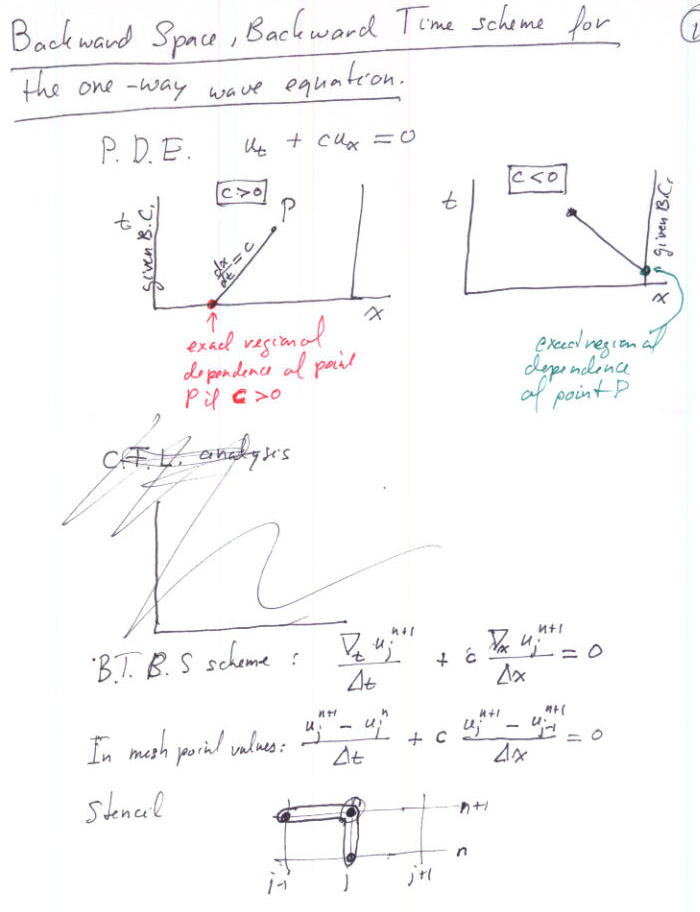 Backward Space, Backward Time scheme for
the one-way wave equation.
P.D.E. u_t + cu_x = 0
c>0
c<0
t
given B.C.
P
dx/dt = c
x
t
given B.C.
x
exact regional
dependence of point
P if c>0
exact regional
dependence
of point P
C.F.L. analysis
B.T.B.S scheme : ∇_t u_j^{n+1}/Δt + c ∇_x u_j^{n+1}/Δx = 0
In mesh point values: (u_j^{n+1} - u_j^n)/Δt + c (u_j^{n+1} - u_{j-1}^{n+1})/Δx = 0
Stencil
n+1
n
j-1 j j+1